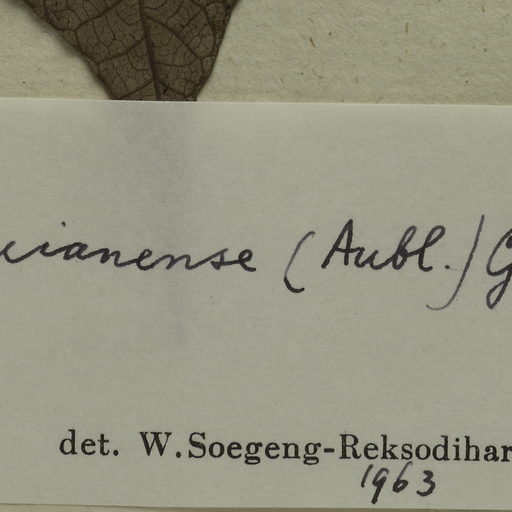 uianense (Aubl.) G
det. W. Soegeng-Reksodihar
1963